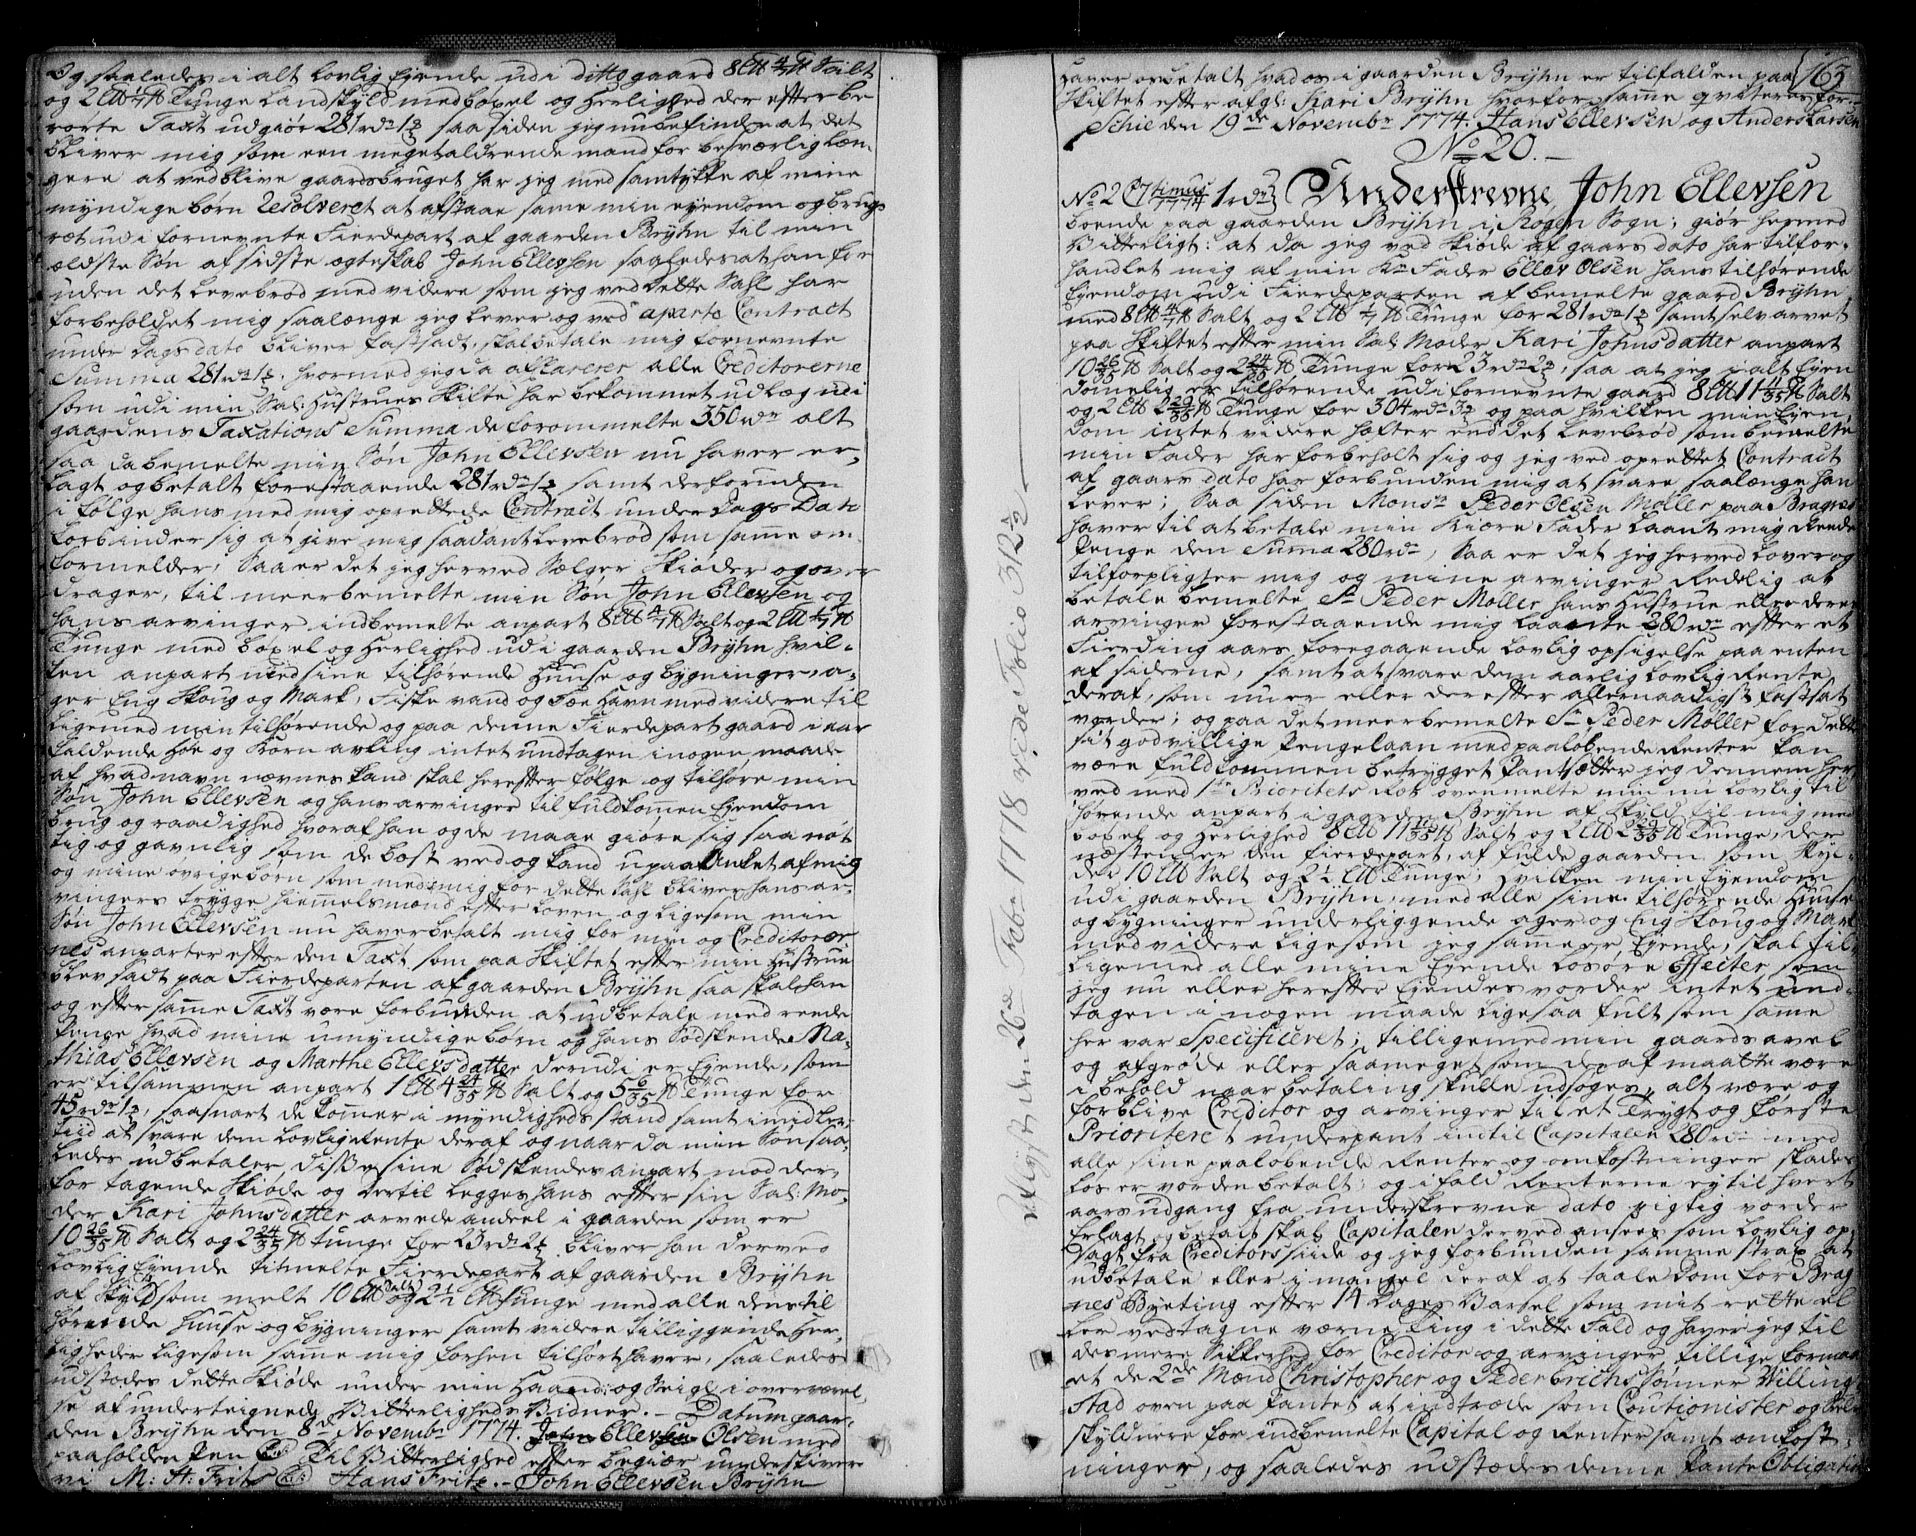 Og saaledes i alt lovlig Ejende udi ditto gaard 8 LB 4/7 lb Salt
og 2 LB 1/7 lb Tunge Landskyld med bøxel og herlighed der efter be
rørte Taxt udgiør 281 rdr 1 2/3 saa siden jeg nu befinder at det
bliver mig som een meget aldrende mand for besværlig læn-
gere at vedblive gaardsbruget har jeg med samtykke af mine
myndige børn Resolveret at afstaae same min eyendom og brugs
ræt udi fornevnte Fierdepart af gaarden Brÿhn til min
ældste Søn af sidste ægteskab John Ellevsen saaledes at han for
uden det Levebrød med videre som jeg ved dette Sahl har
forbeholdet mig saalænge jeg lever og ved aparte Contract
under Dags dato bliver fastsadt, skal betale mig fornevnte
Summa 281 rdr hvormed jeg da afklarerer alle Creditorerne
som udi min Sal: Hustrues Skifte har bekommet udlæg udi
gaardens Taxations Summa de forommelte 350 rdr alt
saa da bemelte min Søn John Ellevsen nu haver er-
lagt og betalt forestaaende 281 rdr samt desforuden
i følge hans med mig oprettede Contract under Dags Dato
forbinder sig at give mig saadant Levebrød som samme om-
formelder, Saa er det jeg herved Sælger Skiøder og over
drager, til meerbemelte min Søn John Ellevsen og
hans arvinger indbemelte anpart 8 LB 4/7 lb Salt og 2 LB 1/7 lb
Tunge med bøxel og herlighed udi gaarden Brÿhn hvil-
ken anpart med sine tilhørende Huuse og bygninger, a-
ger Eng Skoug og Mark, Fiske vand og Fæe havn med videre til
ligemed min tilhørende og paa denne Fierdepart gaard i aar
faldende Høe og Korn avling intet undtagen i nogen maade
af hvad navn nævnes kand skal herefter følge og tilhøre min
Søn John Ellevsen og hans arvinger til fuldkommen Ejendom
brug og raadighed hvoraf han og de maae giøre sig saa nøt
tig og gavnlig som de best ved og kand upaaAnket af mig
og mine øvrige børn som med mig for dette Sahl bliver hans ar-
vingers trygge hiemelsmænd efter Loven og ligesom min
Søn John Ellevsen nu haver betalt mig for min og Creditorer
nes anparter efter den Taxt som paa Skiftet efter min Hustrue
blev sadt paa Fierdeparten af gaarden Brÿhn saa skal han
og efter samme Taxt være forbunden at udbetale med reede
penge hvad mine umyndige børn og hans Sødskende Ma-
thias Ellevsen og Marthe Ellevsdatter derudi er Ejende, som
er tilsammen anpart 1 LB 4 24/35 lb Salt og 5 6/35 lb Tunge for
45 rdr saasnart de kommer i myndigheds stand samt imidler
tiid at svare dem lovlig Rente deraf og naar da min Søn saa-
ledes udbetaler disse sine Sødskendes anpart mod der-
for tagende Skiøde og dertil legges hans efter sin Sal: Mo-
der Kari Johnsdatter arvede andeel i gaarden som er
10 26/35 lb Salt og 2 24/35 lb Tunge for 23 rdr bliver han derved
lovlig Ejende tilmelte Fierdepart af gaarden Brÿhn
af Skyld som melt 10 LB Salt og 2 1/2 LB Tunge med alle dens til
hørende Huuse og bygninger samt videre tilliggende Her-
ligheder ligesom samme mig forhen tilhørt haver, saaledes
udstædes dette Skiøde under min Haand og Seigl i overværel-
se af underteignede Vitterligheds Vidner. — Datum gaar-
den Brÿhn den 8de Novembr 1774. Ellev Olsen med
paaholden Pen Til Vitterlighed efter begiær underskriver
vi M: H: Fritz Hans Fritz. — John Ellevsen Brÿhn
163
haver os betalt hvad os i gaarden Brÿhn er tilfalden paa
Skiftet efter afgl: Kari Brÿhn hvorfor samme qviteres for
Schie den 19de Novembr 1774. Hans Ellevsen og Anders Larsen
No 20. —
Underskrevne, John Ellevsen
boende paa gaarden Brÿhn i Rogen Sogn; giør hermed
Vitterligt: at da jeg ved Skiøde af gaars dato har tilfor-
handlet mig af min Kr. Fader Ellev Olsen hans tilhørende
Eyendom udi Fierdeparten af bemelte gaard Brÿhn
med 8 LB 4/7 lb Salt og 2 LB 1/7 lb Tunge for 281 rdr samt selv arvet
paa Skiftet efter min Sal Moder Kari Johnsdatter anpart
10 26/35 lb Salt og 2 24/35 lb Tunge for 23 rdr, saa at jeg i alt Eyen
domelig er tilhørende udi fornevnte gaard 8 LB 11 lb Salt
og 2 LB 2 29/35 lb Tunge for 304 rdr og paa hvilken min Eyen
dom intet videre hæfter end det Levebrød som bemelte
min Fader har forbeholt sig og jeg ved oprettet Contract
af gaars dato har forbunden mig at svare saalænge han
lever; Saa siden Monsr Peder Olsen Møller paa Bragnes
haver til at betale min Kiære Fader laant mig Rede
Penge den Suma 280 rdr, Saa er det jeg herved lover og
tilforpligter mig og mine arvinger Redelig at
betale bemelte Sr Peder Møller hans Hustrue eller deres
arvinger forestaaende mig laante 280 rdr efter et
Fierding aars foregaaende lovlig opsigelse paa enten
af siderne, samt at svare dem aarlig lovlig Rente
deraf, som nu er eller derefter allernaadigst fastsat
vorder; og paa det meerbemelte Sr Peder Møller for dette
sit godvillige Pengelaan med paaløbende Renter kan
være fuldkommen betrygget Pantsætter jeg dennem her
ved med 1ste Prioritets Ret ovenmelte min nu lovlig til
hørende anpart i gaarden Brÿhn af Skyld til mig med
bøxel og herlighed 8 LB 11 lb Salt og 2 LB 2 29/35 lb Tunge, der
næsten er den fierdepart, af fulde gaarden som Skyl-
der 10 LB Salt og 2 1/2 LB Tunge, hvilken min Eyendom
udi gaarden Brÿhn, med alle sine tilhørende Huuse
og bygninger underliggende ager og Eng Skoug og Mark
med videre ligesom jeg same er Eyende, skal til-
ligemed alle mine Eyende Løsøre Effecter som
jeg nu eller herefter Ejendes vorder intet und-
tagen i nogen maade ligesaa fult som same
her var Specificeret; tilligemed min gaards avel
og afgrøde eller saameget som deraf maatte være
i behold naar betaling skulle udsøges, alt være og
forblive Creditor og arvinger til et Trygt og første
Prioriteret underpant indtil Capitalen 280 rdr med
alle sine paaløbende Renter og omkostninger skades
løs er vorden betalt; og i fald Renterne ey til hvert
aars udgang fra underskrevne dato rigtig vorder
Erlagt og betalt skal Capitalen derved ansees som lovlig op-
sagt fra Creditors siide og jeg forbunden samme strax at
udbetale eller i mangel deraf at taale Dom for Brag
nes Byeting efter 14 Dages Varsel som mit rette el-
ler vedtagne værneting i dette Fald og haver jeg til
desmere Sikkerhed for Creditor og arvinger tillige formaa
et de 2de Mænd Christopher og Peder Erichs Sønner Villing
stad oven paa Pantet at indtræde som Cautionister og Selv
skyldnere for indbemelte Capital og Renter samt omkost-
ninger, og saaledes udstædes denne Pante Obligation
Aflyst den 26de Febr 1778 vide Folio 312